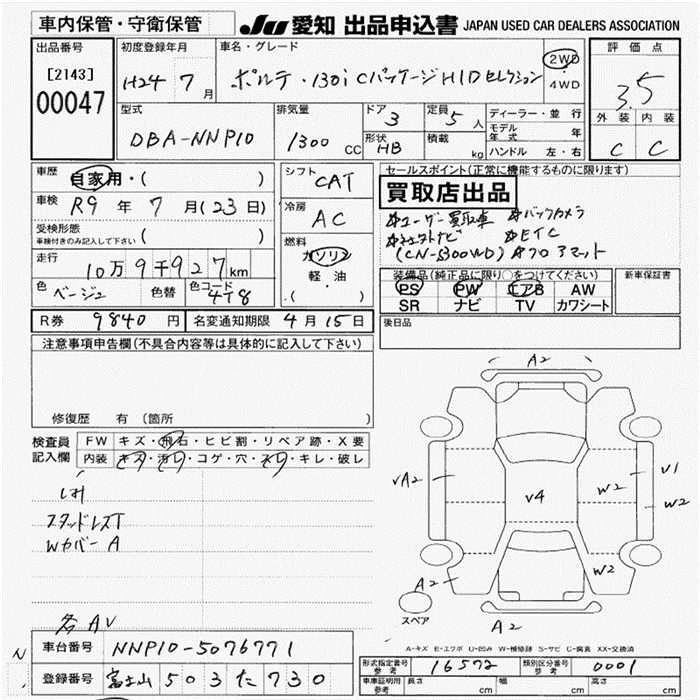 車内保管・守衛保管
JU 愛知 出品申込書 JAPAN USED CAR DEALERS ASSOCIATION
出品番号
[2143]
00047
初度登録年月
H24 7月
車名・グレード
ポルテ・130i Cパッケージ HIDセレクション
2WD
・
4WD
評価点
3.5
外装 内装
C C
型式
DBA-NNP10
排気量
1300 CC
ドア 3
形状 HB
定員 5人
積載 kg
ディーラー・並行
モデル年式 年
ハンドル 左・右
車歴
自家用・( )
車検
R9年 7月(23日)
受検形態
車検付きのみ記入して下さい ( )
走行
10万9千927km
色
ベージュ
色替
色コード
4T8
シフト
CAT
冷房
AC
燃料
ガソリン
軽・油
・( )
セールスポイント(正常に機能するものに限ります)
買取店出品
*ユーザー買取車 *バックカメラ
*ETC
(CN-S300WD) *フロアマット
装備品(純正品に限り○をつけてください)
PS PW エアB AW
SR ナビ TV カワシート
新車保証書
後日品
R券 9840円 名変通知期限 4月15日
注意事項申告欄(不具合内容等は具体的に記入して下さい)
修復歴 有(箇所 )
検査員
記入欄
FW キズ・飛石・ヒビ割・リペア跡・X要
内装 キズ・汚レ・コゲ・穴・スリ・キレ・破レ
スタッドレスT
Wカバー A
各AV
A2
VA2
V4
W2
V1
W2
W2
A2
A2
スペア
A-キズ E-エクボ U-凹み W-補修跡 S-サビ C-腐食 XX-交換済
N
車台番号 NNP10-5076771
登録番号 富士山 503 た 730
形式指定番号
参考
16572
類別区分番号
参考
0001
車庫証明用
参考
長さ cm
幅 cm
高さ cm